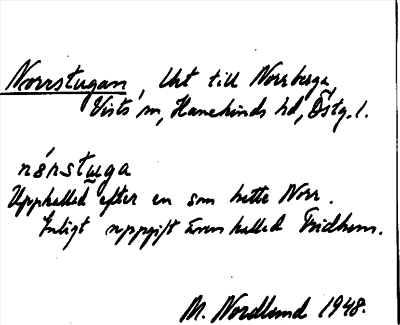 Norrstugan, Lht till Norrberga,
Vists sn, Hanekinds hd, Östg. l.
nǒrstu̲ga
Uppkallad efter en som hette Norr.
Enligt uppgift även kallad Fridhem.
M. Nordlund 1948.